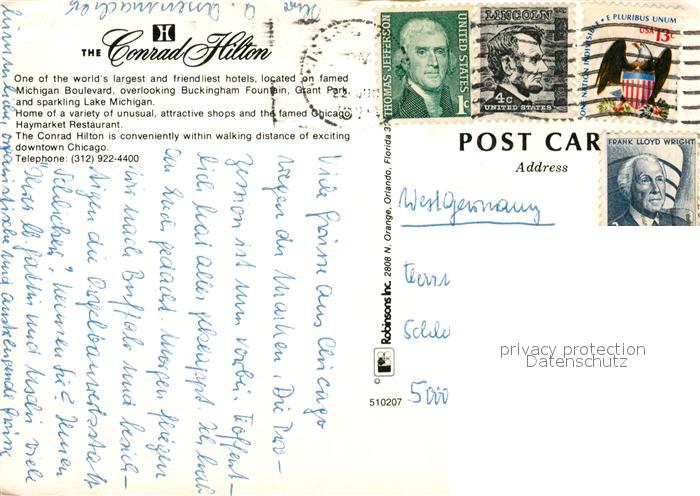 THE Conrad Hilton
One of the world's largest and friendliest hotels, located on famed
Michigan Boulevard, overlooking Buckingham Fountain, Grant Park,
and sparkling Lake Michigan.
Home of a variety of unusual, attractive shops and the famed Chicago
Haymarket Restaurant.
The Conrad Hilton is conveniently within walking distance of exciting
downtown Chicago.
Telephone: (312) 922-4400
THOMAS JEFFERSON
UNITED STATES
1c
LINCOLN
4c
UNITED STATES
E PLURIBUS UNUM
USA 13c
ONE NATION INDIVISIBLE
FRANK LLOYD WRIGHT
POST CAR
Address
West Germany
Herrn
5000
privacy protection
Datenschutz
Robinsons Inc. 2808 N. Orange, Orlando, Florida 3
©
510207
Viele Grüsse aus Chicago
wegen der Marken. Die Pro-
zession ist nun vorbei. Hoffent-
lich hat alles geklappt. Ich hab
an Euch gedacht. Morgen fliegen
wir nach Buffalo und besich-
tigen die Orgelbauwerkstatt
Schlicker. Kennen Sie? Ihnen